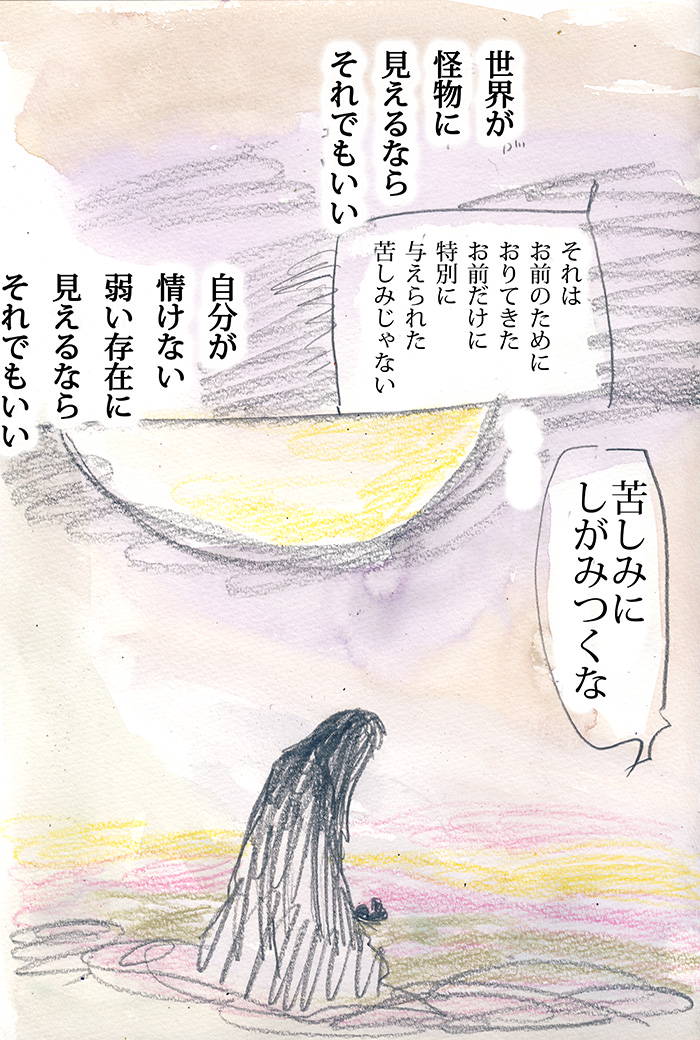 世界が
怪物に
見えるなら
それでもいい
それは
お前のために
おりてきた
お前だけに
特別に
与えられた
苦しみじゃない
自分が
情けない
弱い存在に
見えるなら
それでもいい
苦しみに
しがみつくな